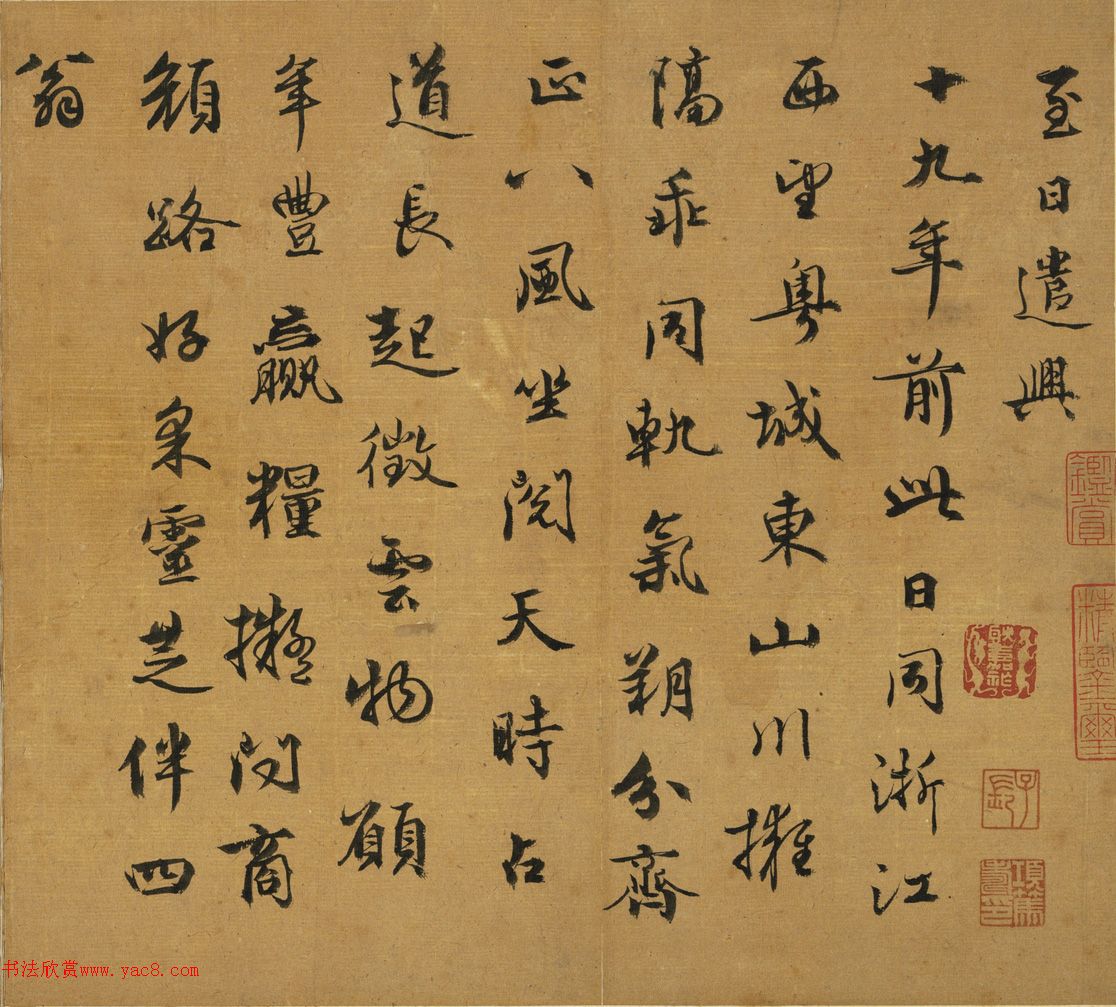 至日遣興
十九年前此日同浙江
西望粵城東山川擁
隔乖同軌氣朔分齊
正八風坐閱天時占
道長起徵雲物願
年豐贏糧擬問商
顏路好采靈芝伴四
翁
鑑賞
項叔子
子孫
書法欣赏www.yac8.com